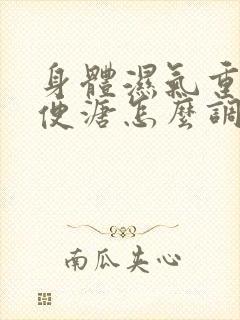 身體濕氣重
便溏怎麼調
南瓜夾心